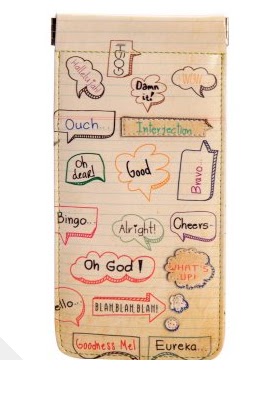 GOSH
Hallelujah
Damn
it!
WOW
Ouch...
Interjection...
Oh
dear!
Good
Bravo...
Bingo...
Alright!
Cheers-
Oh God!
WHAT'S
UP!
ello...
BLAH, BLAH, BLAH!
Goodness Me!
Eureka...